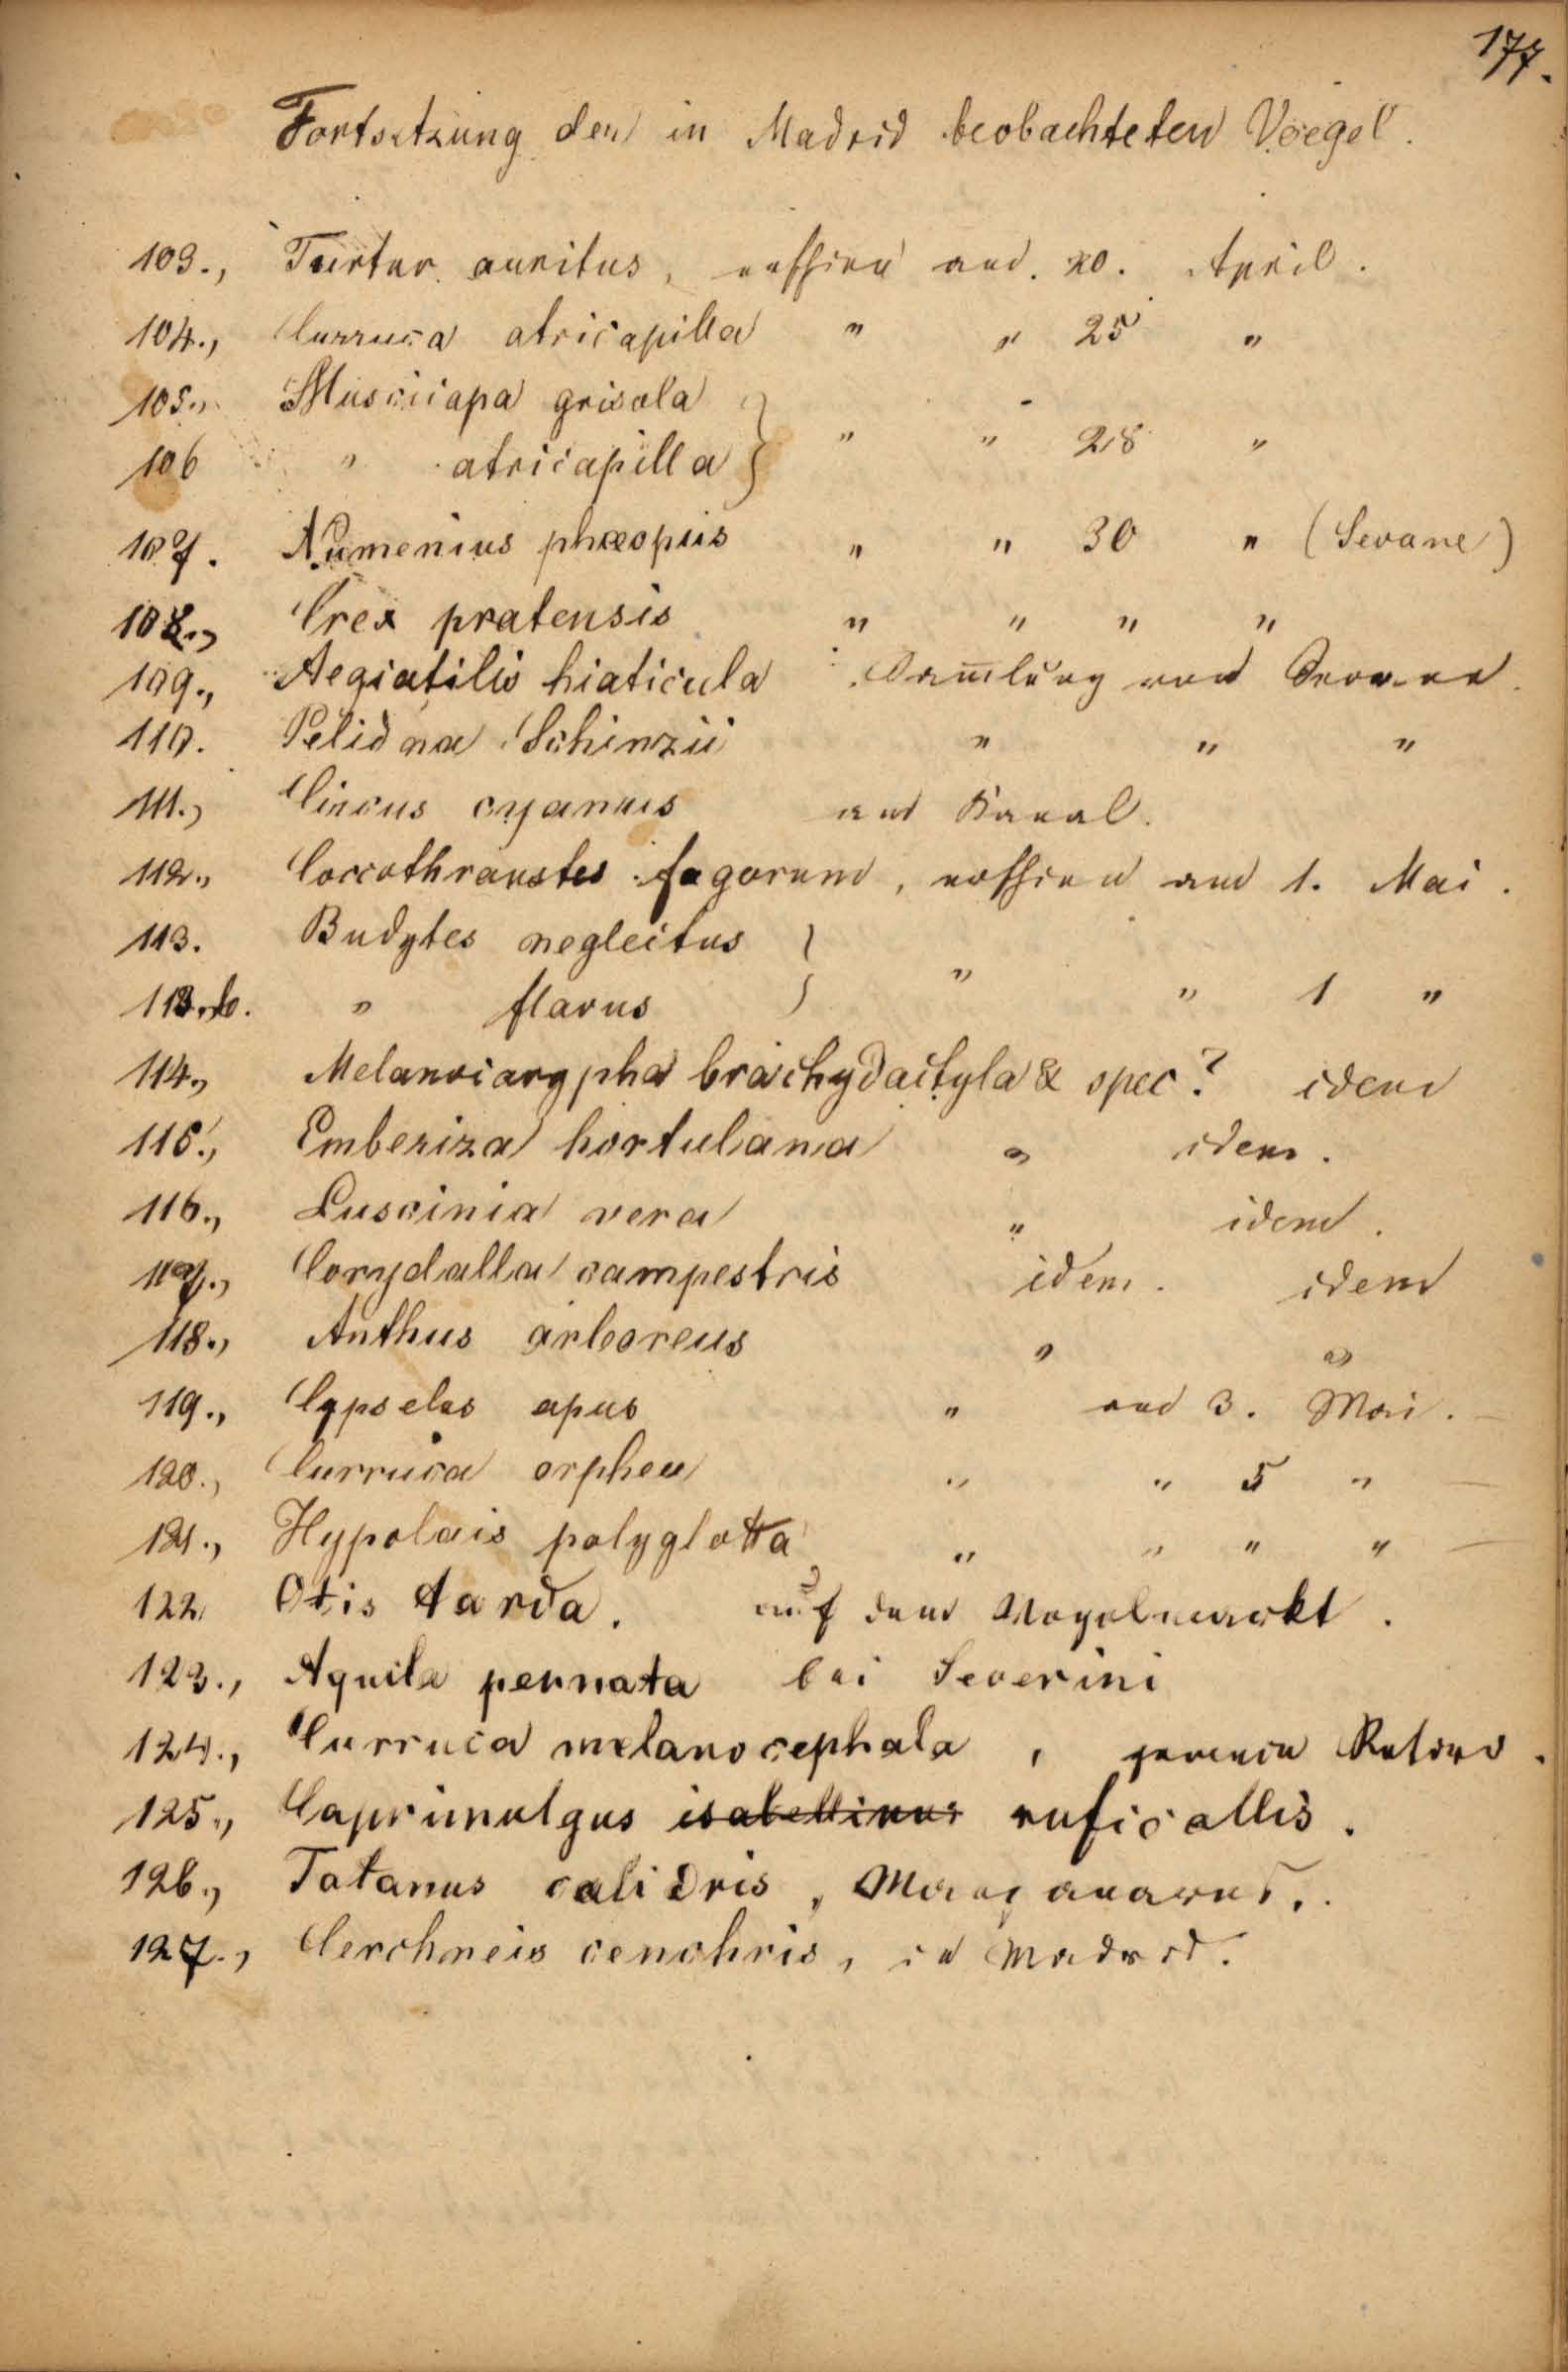 177.
Fortsetzung der in Madrid beobachteten Voegel.
103., Turtur auritus, erschien am 20. April.
104., Curruca atricapilla " " 25 "
105., Muscicapa grisola
106 " atricapilla } " " 28 "
107. Numenius phæopus " " 30 " (Sevane)
108., Crex pratensis " " " "
109., Aegiatilis hiaticula Sam̄lung von
110. Pelidna Schinzii " " "
111., Circus cyaneus am Kanal.
112., Coccothraustes fagorum, erschien am 1. Mai.
113. Budytes neglectus
113.b. " flavus } " " 1 "
114., Melanocorypha brachydactyla & spec? idem
115., Emberiza hortulana " idem.
116., Luscinia vera " idem.
117., Corydalla campestris idem. idem
118., Anthus arboreus " "
119., Cypselus apus " am 3. Mai. —
120., Curruca orphea " " 5 " —
121., Hypolais polyglotta " " " " —
122 Otis tarda. auf dem Vogelmarkt.
123., Aquila pennata bei Severini
124., Curruca melanocephala, gemein Retiro.
125., Caprimulgus isabellinus ruficollis.
126., Totanus calidris, Manzanares.
127., Cerchneis cenchris, in Madrid.